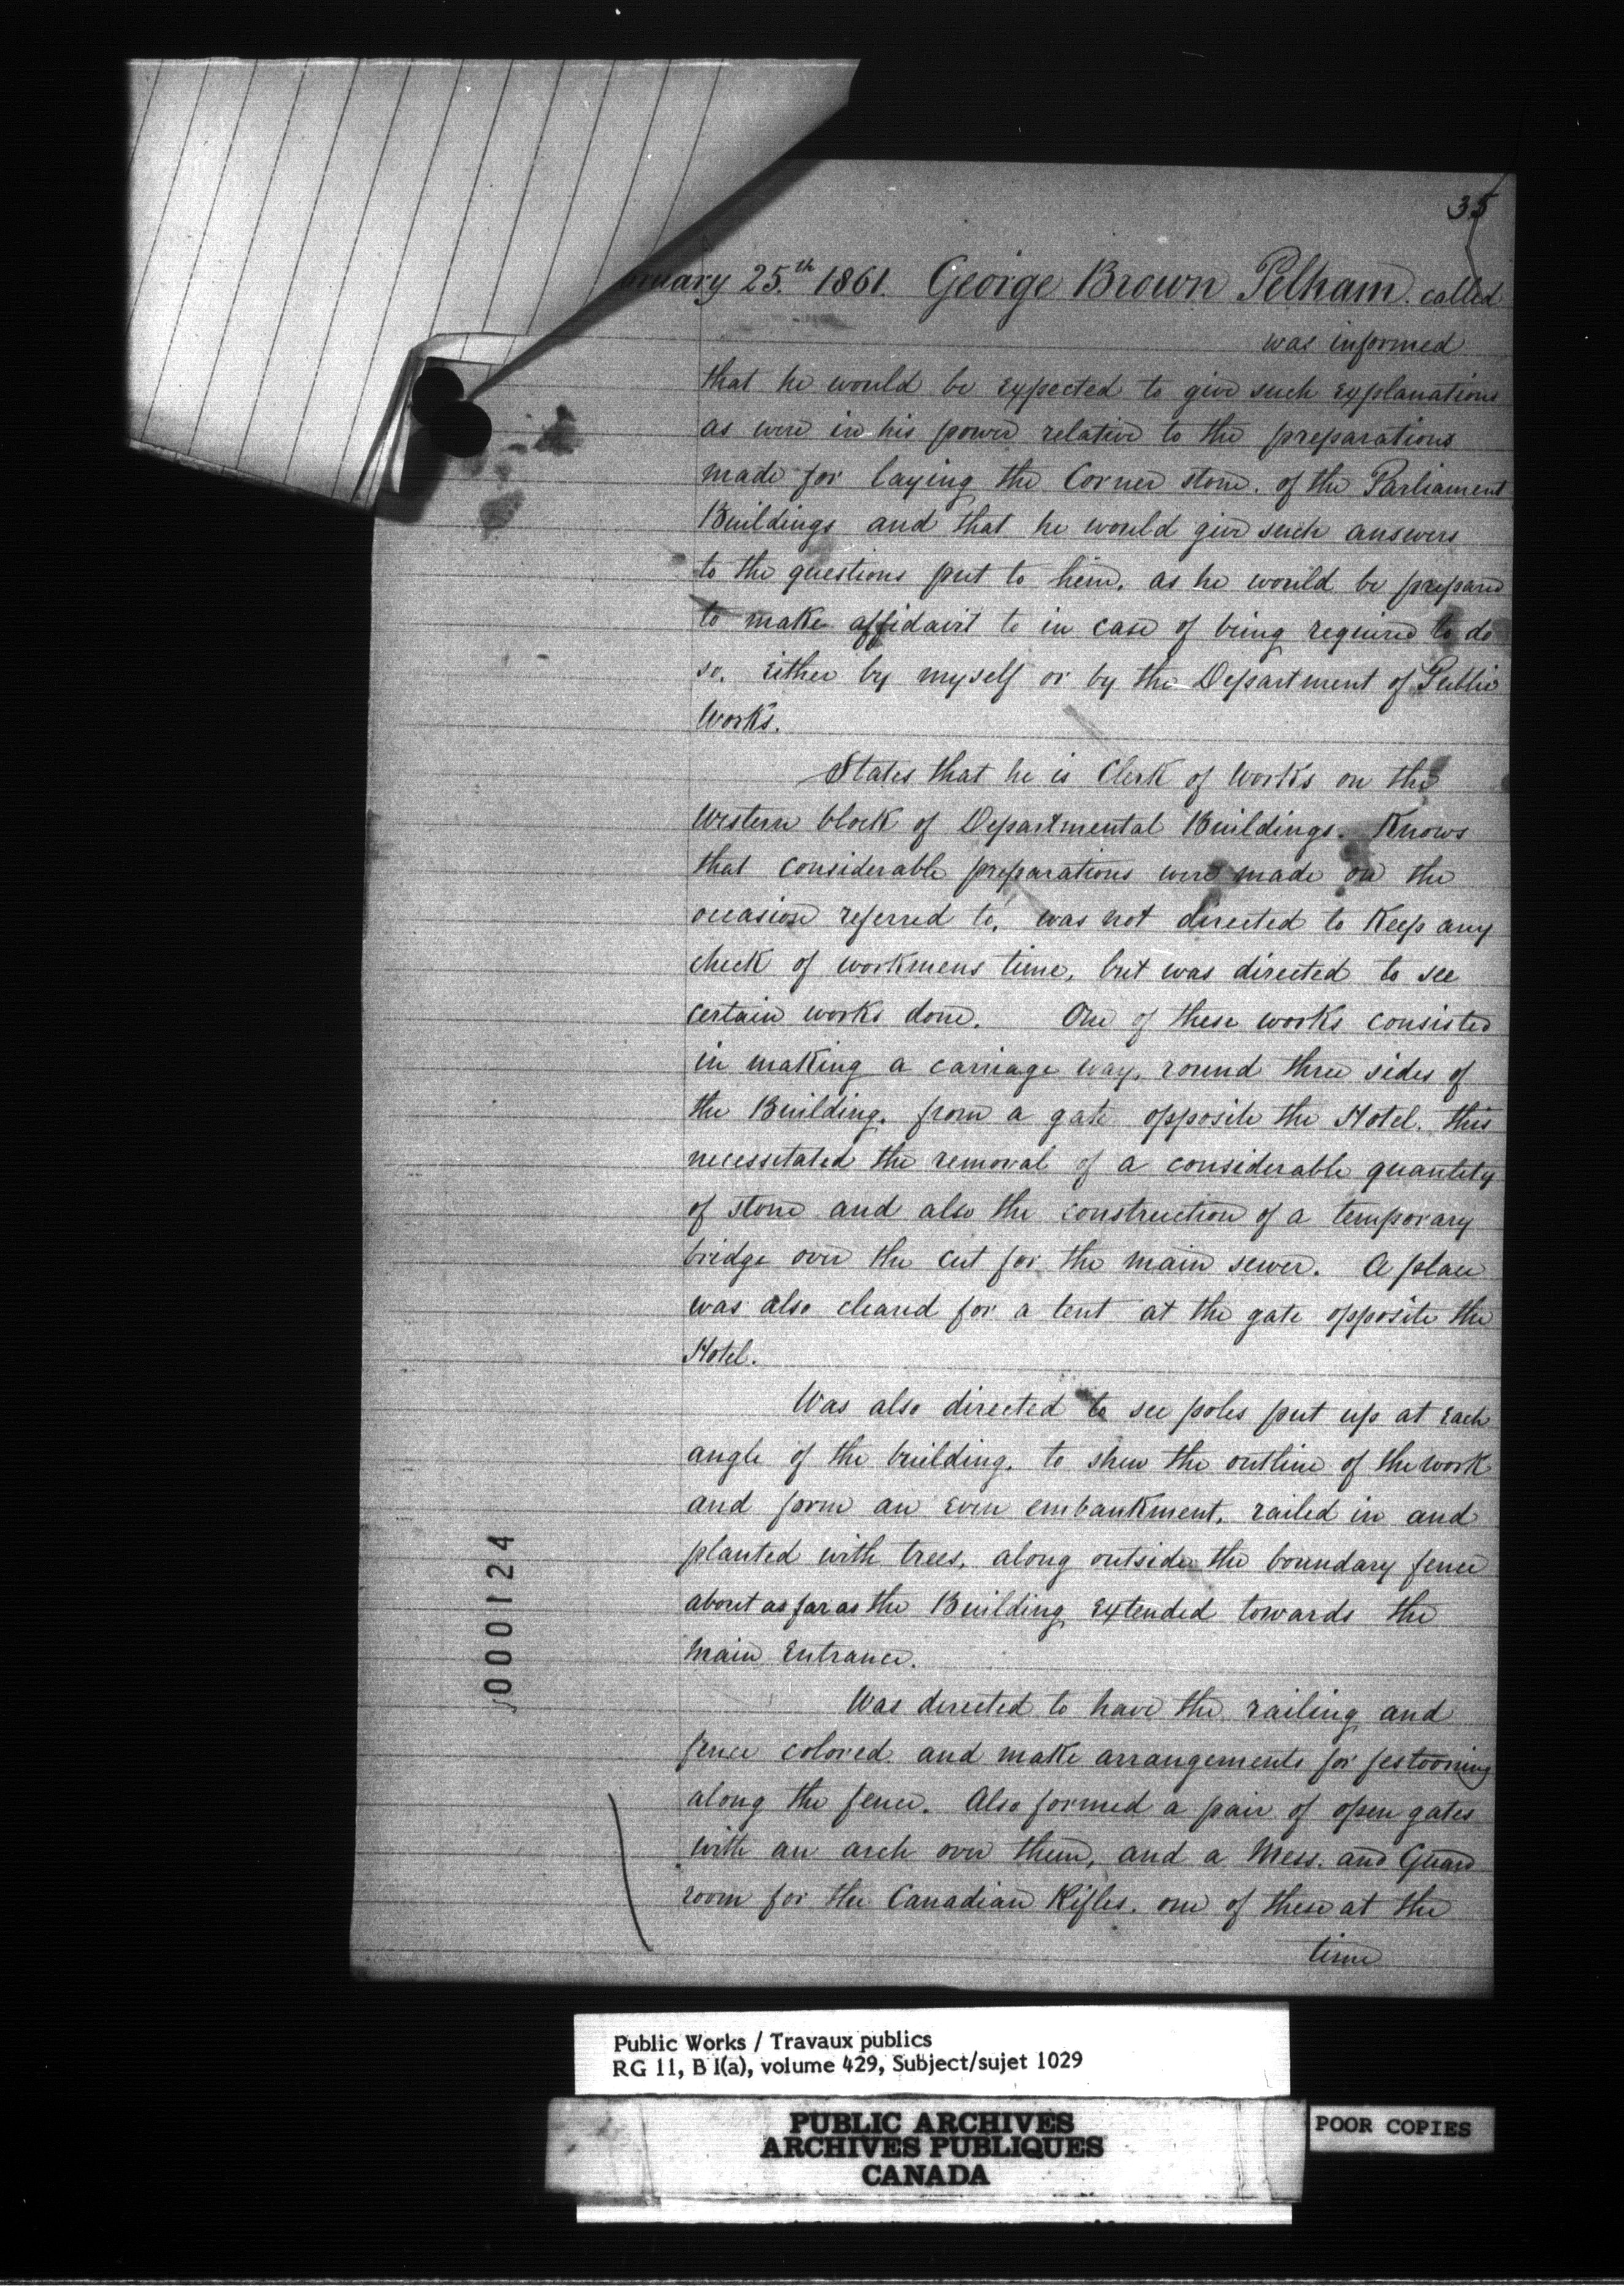 35
ruary 25.th 1861. George Brown Pelham. called
was informed
that he would be expected to give such explanations
as were in his power relative to the preparations
made for laying the Corner stone. of the Parliament
Buildings and that he would give such answers
to the questions put to him, as he would be prepared
to make affidavit to in case of being required to do
so. either by myself or by the Department of Public
Works.
States that he is Clerk of Works on the
Western block of Departmental Buildings. Knows
that considerable preparations were made on the
occasion referred to, was not directed to Keep any
check of workmens time, but was directed to see
certain works done. One of these works consisted
in making a carriage way, round three sides of
the Building. from a gate opposite the Hotel. this
necessitated the removal of a considerable quantity
of stone and also the construction of a temporary
bridge over the cut for the main sewer. A place
was also cleared for a tent at the gate opposite the
Hotel.
Was also directed to see poles put up at each
angle of the building. to shew the outline of the work
and form an even embankment, railed in and
planted with trees, along outside the boundary fence
about as far as the Building extended towards the
main entrance.
Was directed to have the railing and
fence colored and make arrangements for festooning
along the fence. Also formed a pair of open gates
with an arch over them, and a Mess. and Guard
room for the Canadian Rifles. one of these at the
time
000124
Public Works / Travaux publics
RG 11, B 1(a), volume 429, Subject/sujet 1029
PUBLIC ARCHIVES
ARCHIVES PUBLIQUES
CANADA
POOR COPIES